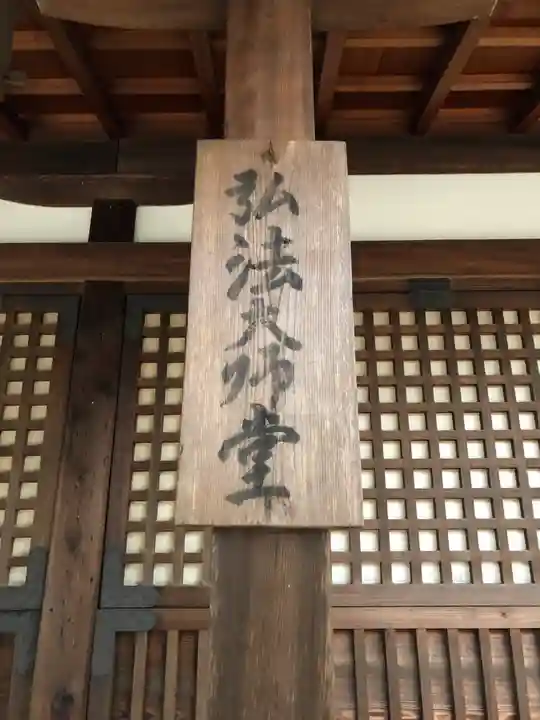 弘法大師堂